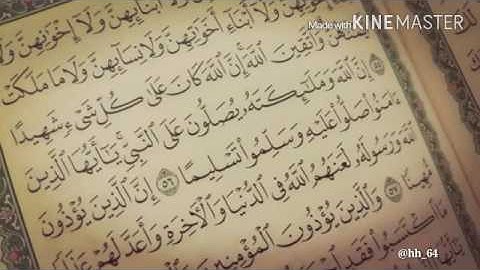 Made with KINEMASTER
أَبْنَآئِهِنَّ وَلَآ إِخْوَٰنِهِنَّ وَلَآ
أَبْنَآءِ أَخَوَٰتِهِنَّ وَلَا نِسَآئِهِنَّ وَلَا مَا مَلَكَتْ
وَٱتَّقِينَ ٱللَّهَ إِنَّ ٱللَّهَ كَانَ عَلَىٰ كُلِّ شَىْءٍ شَهِيدًا
إِنَّ ٱللَّهَ وَمَلَٰٓئِكَتَهُۥ يُصَلُّونَ عَلَى ٱلنَّبِىِّ يَٰٓأَيُّهَا ٱلَّذِينَ
ءَامَنُوا۟ صَلُّوا۟ عَلَيْهِ وَسَلِّمُوا۟ تَسْلِيمًا ٥٦ إِنَّ ٱلَّذِينَ يُؤْذُونَ
ٱللَّهَ وَرَسُولَهُۥ لَعَنَهُمُ ٱللَّهُ فِى ٱلدُّنْيَا وَٱلْءَاخِرَةِ وَأَعَدَّ لَهُمْ عَذَابًا
مُّهِينًا ٥٧ وَٱلَّذِينَ يُؤْذُونَ ٱلْمُؤْمِنِينَ
مَا ٱكْتَسَبُوا۟ فَقَدِ
@hh_64